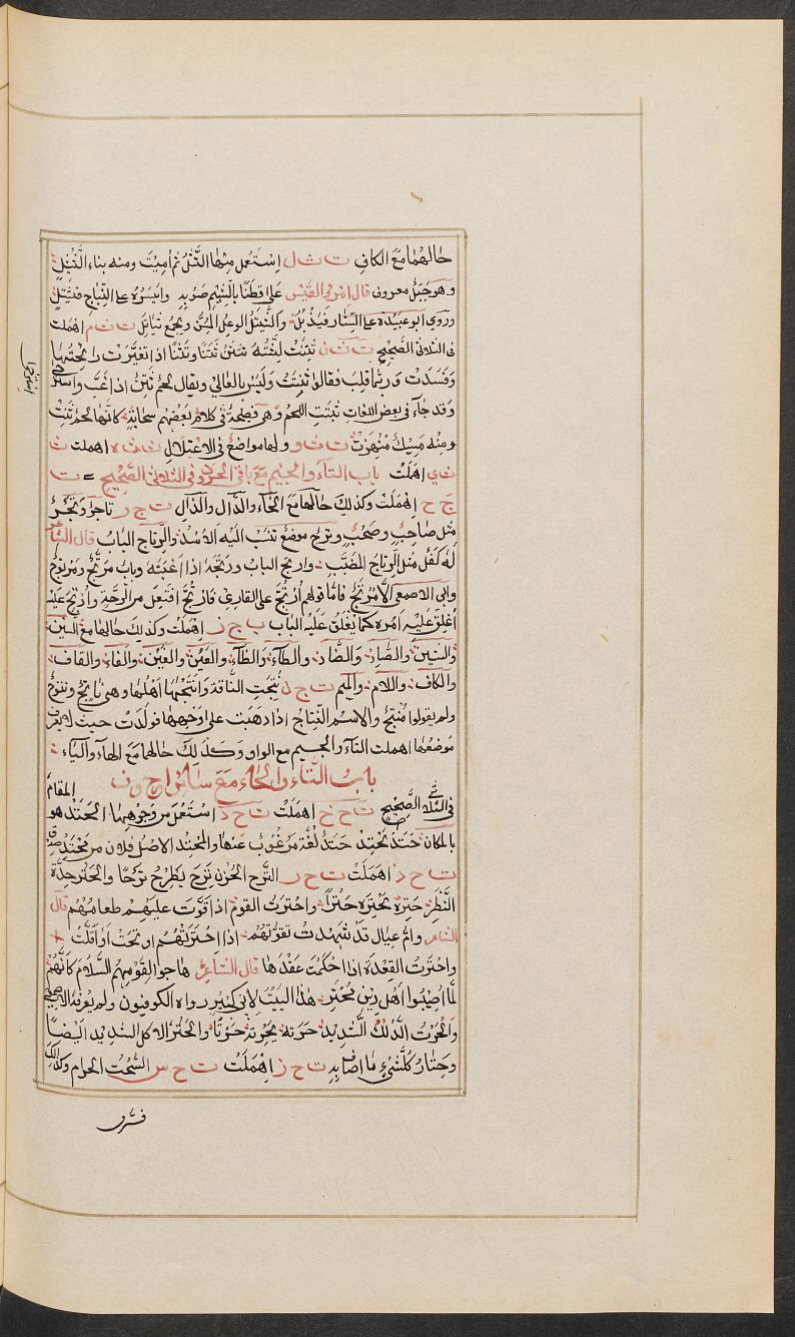 حالهما مع الكاف ت ث ل استعمل منها الثتل ثم اميت ومنه بناء الثيتل
وهو جبل معروف قال امرؤ القيس على قطنا بالشيم صوبه وايسره على النباج فثيتل
وروى ابو عبيدة على الستار فيذبل والثيتل الوعل المسن ويجمع ثياتل ت ث م اهملت
فى الثلاثى الصحيح ت ث ن ثتنت لثته تثتن ثتنا وثتنا اذا تغيرت رايحتها
وفسدت وربما قلب فقالوا ثنتت وليس بالعالى ويقال لحم ثتن اذا غب واسترخى
وقد جاء فى بعض اللغات ثنتت اللحم وهى فصيحة فى كلام بعضهم سحابة كانها لحم ثنت
ومنه مسيك منهرت ت ث و ولها مواضع فى الاعتلال ت ث ه اهملت ت
ث ي اهملت باب التاء والجيم مع باقى الحروف فى الثلاثى الصحيح ت
ج ح اهملت وكذلك حالهما مع الخاء والدال والذال ت ج ر تاجر وتجر
مثل صاحب وصحب وترج موضع تنسب اليه الاسد والرتاج الباب قال الشاعر
له كفل مثل الرتاج المضبب وارتج الباب ورتجه اذا اغلقه وباب مرتج ومرتوج
وابى الاصمعى الا مرتج فاما قولهم ارتج على القارى فارتج افتعل من الرجة وارتج عليه
اغلق عليه امره كما يغلق عليه الباب ت ج ز اهملت وكذلك حالها مع السين
والشين والصاد والضاد والطاء والظاء والعين والغين والفاء والقاف
والكاف واللام والميم ت ج ن نتجت الناقة وانتجها اهلها وهى ناتج ونتوج
ولم يقولوا منتج والاسم النتاج اذا ذهبت على وجهها فولدت حيث لا يعرف
موضعها اهملت التاء والجيم مع الواو وكذلك حالهما مع الهاء والياء
باب التاء والحاء مع سائر الحروف
فى الثلاثى الصحيح ت ح خ اهملت ت ح د استعمل من وجوهها الحتد هو المقام
بالمكان حتد يحتد حتدا لغة مرغوب عنها والمحتد الاصل فلان من محتد صدق
ت ح ذ اهملت ت ح ر الترح الحزن ترح يطرح ترحا والحتر حدة
النظر حتره يحتره حترا واحترت القوم اذا قوت عليهم طعامهم قال
الشاعر وام عيال قد شهدت تقوتهم اذا احترتهم اوتحت واقلت
واحترت العقدة اذا احكمت عقدها قال الشاعر هاجوا لقومهم السلام كانهم
لما اصيبوا اهل دين محتر هذا البيت لابى كبير رواه الكوفيون ولم يعرفه الاصمعى
والحوت الدلك الشديد حرته يحرته حرتا والحتر الاكل الشديد ايضا
وحتار كل شىء ما اطاف به ت ح ز اهملت ت ح س السحت الحرام وكذلك
فسرق
استرخى